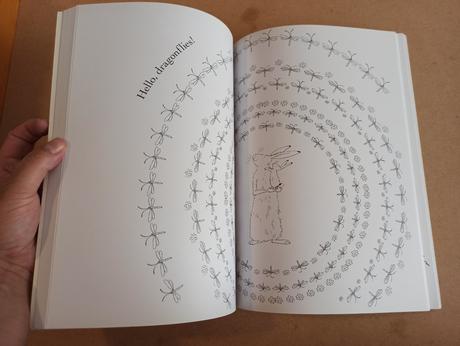 Hello, dragonflies!